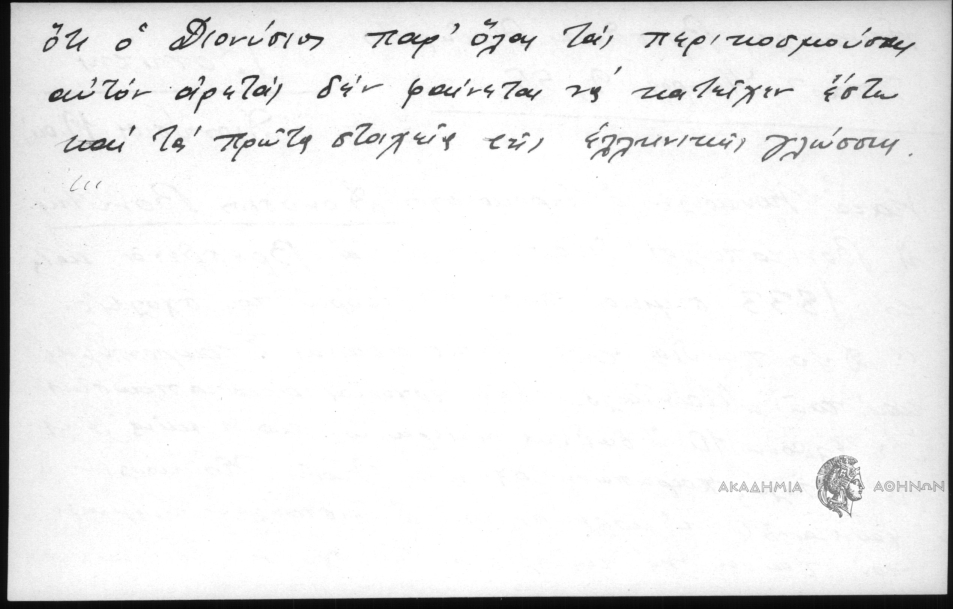 ὅτι ὁ Διονύσιος παρ' ὅλας τάς περικοσμούσας
αὐτόν ἀρετάς δέν φαίνεται νά κατεῖχεν ἔστω
καί τά πρῶτα στοιχεῖα τῆς ἑλληνικῆς γλώσσης.
ΑΚΑΔΗΜΙΑ ΑΘΗΝΩΝ